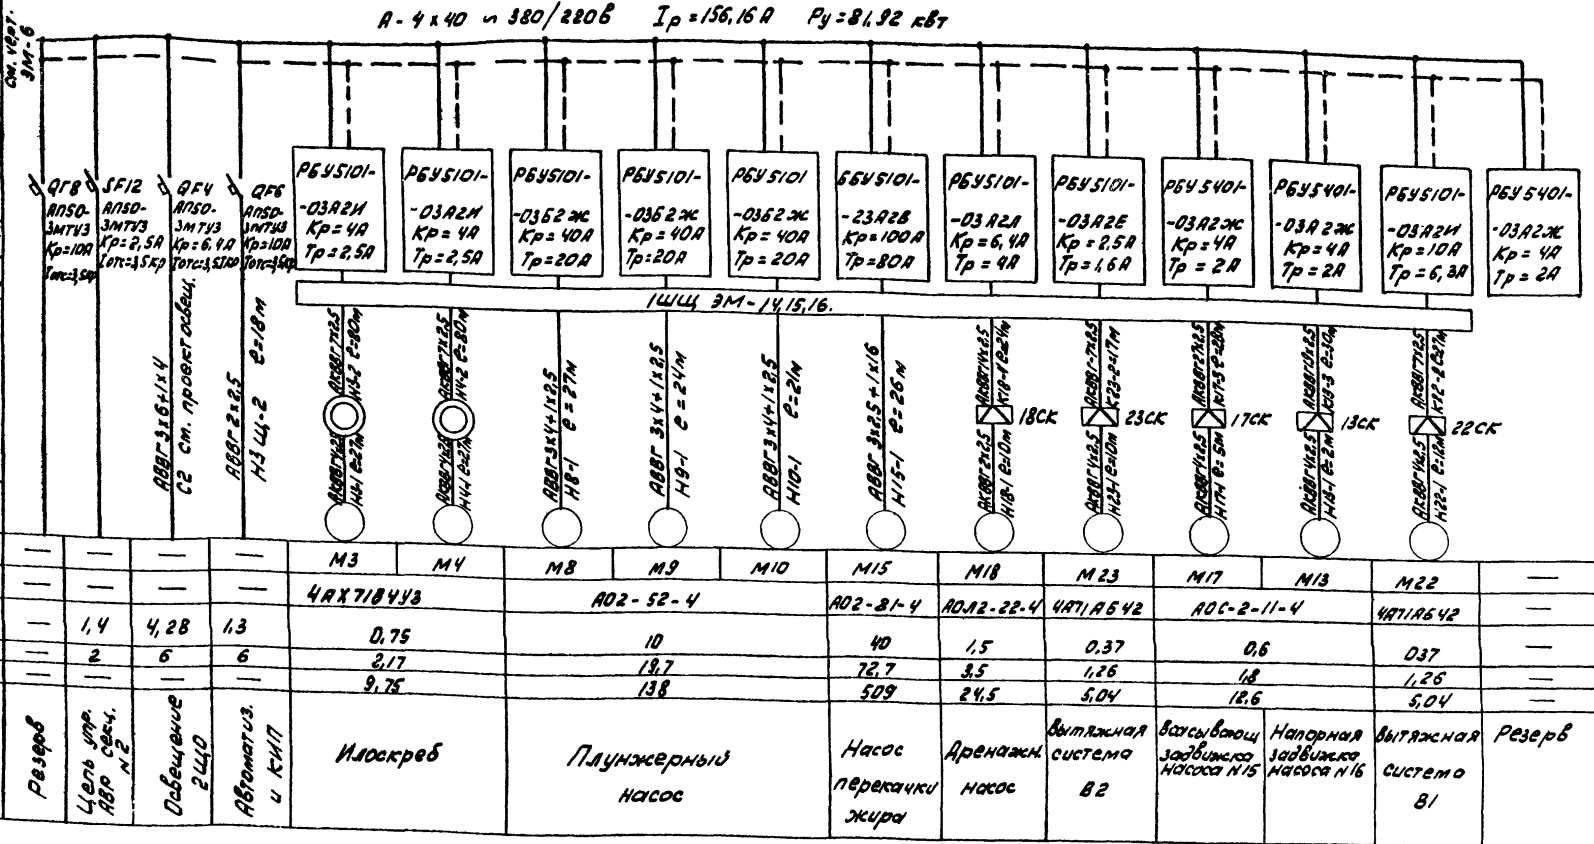 А-4х40 ~ 380/220В Iр=156,16А Ру=81,92 кВт
см. черт.
ЭМ-6
QF8
АП50-
3МТУ3
Кр=10А
Iотс=3,5Кр
SF12
АП50-
3МТУ3
Кр=2,5А
Iотс=3,5Кр
QF4
АП50-
3МТУ3
Кр=6,4А
QF6
АП50-
3МТУ3
Кр=10А
РБУ5101-
-03А2И
Кр=4А
Тр=2,5А
РБУ5101-
-03А2И
Кр=4А
Тр=2,5А
РБУ5101-
-03Б2Ж
Кр=40А
Тр=20А
РБУ5101-
-03Б2Ж
Кр=40А
Тр=20А
РБУ5101
-03Б2Ж
Кр=40А
Тр=20А
ББУ5101-
-23А2В
Кр=100А
Тр=80А
РБУ5101-
-03А2Л
Кр=6,4А
Тр=4А
РБУ5101-
-03А2Е
Кр=2,5А
Тр=1,6А
РБУ5401-
-03А2Ж
Кр=4А
Тр=2А
РБУ5401-
-03А2Ж
Кр=4А
Тр=2А
РБУ5101-
-03А2И
Кр=10А
Тр=6,3А
РБУ5401-
-03А2Ж
Кр=4А
Тр=2А
1ШЩ ЭМ-14,15,16.
АВВГ3х6+1х4
С2 см. проект освещ.
АВВГ2х2,5
Н3Щ-2 ℓ=18м
АКВВГ7х2,5
Н3-2 ℓ=80м
АКВВГ4х2,5
Н3-1 ℓ=27м
АКВВГ7х2,5
Н4-2 ℓ=80м
АКВВГ4х2,5
Н4-1 ℓ=27м
АВВГ3х4+1х2,5
Н8-1 ℓ=27м
АВВГ 3х4+1х2,5
Н9-1 ℓ=24м
АВВГ3х4+1х2,5
Н10-1 ℓ=21м
АВВГ 3х2.5+1х16
Н15-1 ℓ=26м
АКВВГ14х2,5
К18-1 ℓ=24м
18СК
АКВВГ2х2,5
Н18-1 ℓ=10м
АКВВГ-7х2,5
К23-2=17м
23СК
АКВВГ4х2,5
Н23-1 ℓ=10м
К17-3 ℓ=28м
17СК
АКВВГ4х2,5
Н17-1 ℓ=5м
К13-3 ℓ=30м
13СК
АКВВГ4х2,5
Н13-1 ℓ=2м
АКВВГ7х2,5
К22-2 ℓ=27м
22СК
АКВВГ4х2,5
Н22-1 ℓ=12м
— — — — М3 М4 М8 М9 М10 М15 М18 М23 М17 М13 М22 —
— — — — 4АХ71В4У3 АО2-52-4 АО2-81-4 АОЛ2-22-4 4А71А6У2 АОС-2-11-4 4А71А6У2 —
— 1,4 4,28 1.3 0.75 10 40 1,5 0.37 0,6 037 —
— 2 6 6 2,17 19,7 72,7 3,5 1,26 1,8 1,26 —
— — — — 9,75 138 509 24,5 5,04 12,6 5,04 —
Резерв
Цепь упр.
АВР секц.
N2
Освещение
2ЩО
Автоматиз.
и КИП
Илоскреб
Плунжерный
насос
Насос
перекачки
жира
Дренажн.
насос
Вытяжная
система
В2
Всасывающ
задвижка
насоса N15
Напорная
задвижка
насоса N16
Вытяжная
система
В1
Резерв